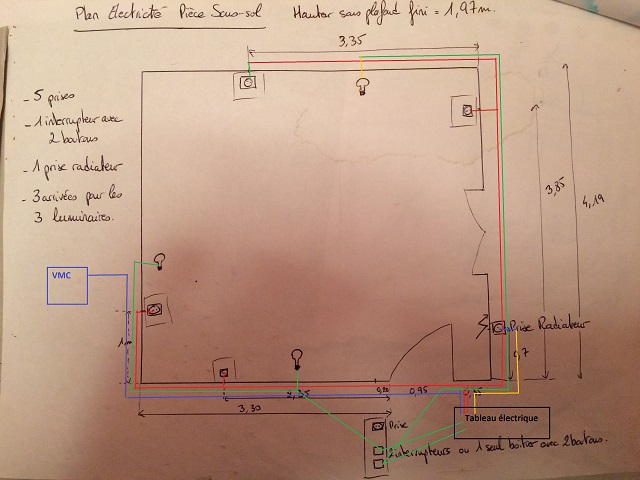 Plan Electricité Pièce Sous-sol
Hauteur sous plafond fini = 1,97m.
3,35
- 5 prises
- 1 interrupteur avec
2 boutons
- 1 prise radiateur
- 3 arrivées pour les
3 luminaires.
3,85
4,19
VMC
Prise Radiateur
1m
0,7
2,25
0,20
0,95
3,30
Prise
Tableau électrique
2 interrupteurs ou 1 seul boitier avec 2 boutons.